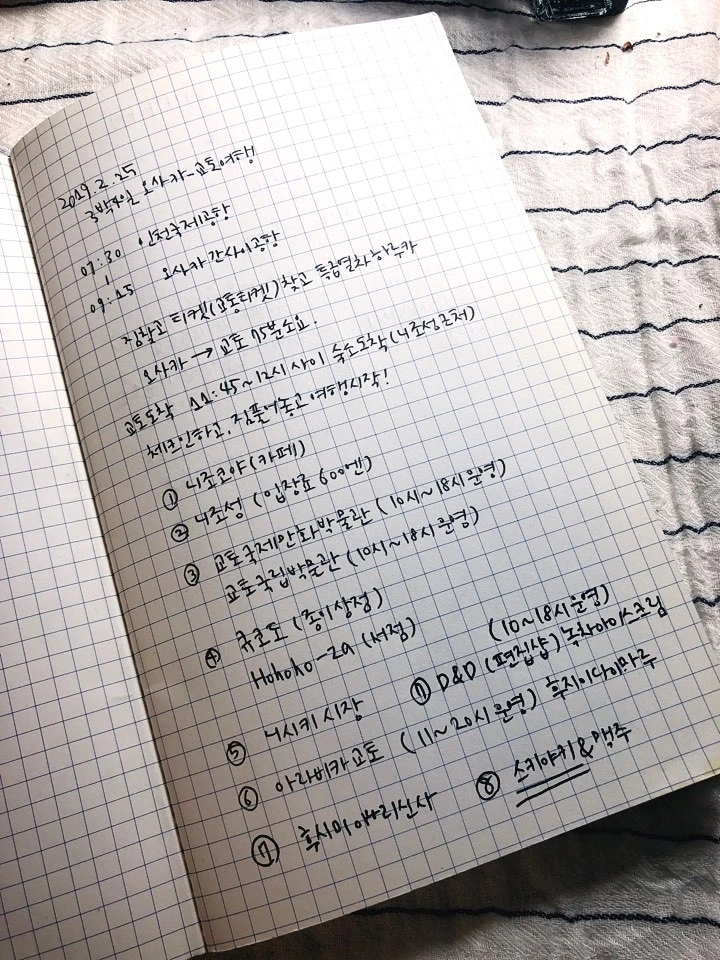 2019.2.25
3박4일 오사카-교토여행
07:30 인천국제공항
|
09:15 오사카 간사이공항
짐찾고 티켓(교통티켓)찾고 특급열차하루카
오사카 → 교토 75분소요.
교토도착 11:45~12시 사이 숙소도착(니조성근처)
체크인하고, 짐풀어놓고 여행시작!
① 니조코야(카페)
② 니조성 (입장료 600엔)
③ 교토국제만화박물관 (10시~18시운영)
교토국립박물관 (10시~18시운영)
④ 큐쿄도 (종이상점)
Hohoho-za (서점)
⑤ 니시키 시장
⑥ 아라비카교토 (11~20시 운영) 후지이다이마루
⑦ 후시미이나리신사
(10~18시운영)
⑦ D&D (편집샵) 녹차아이스크림
⑧ 스키야키&맥주